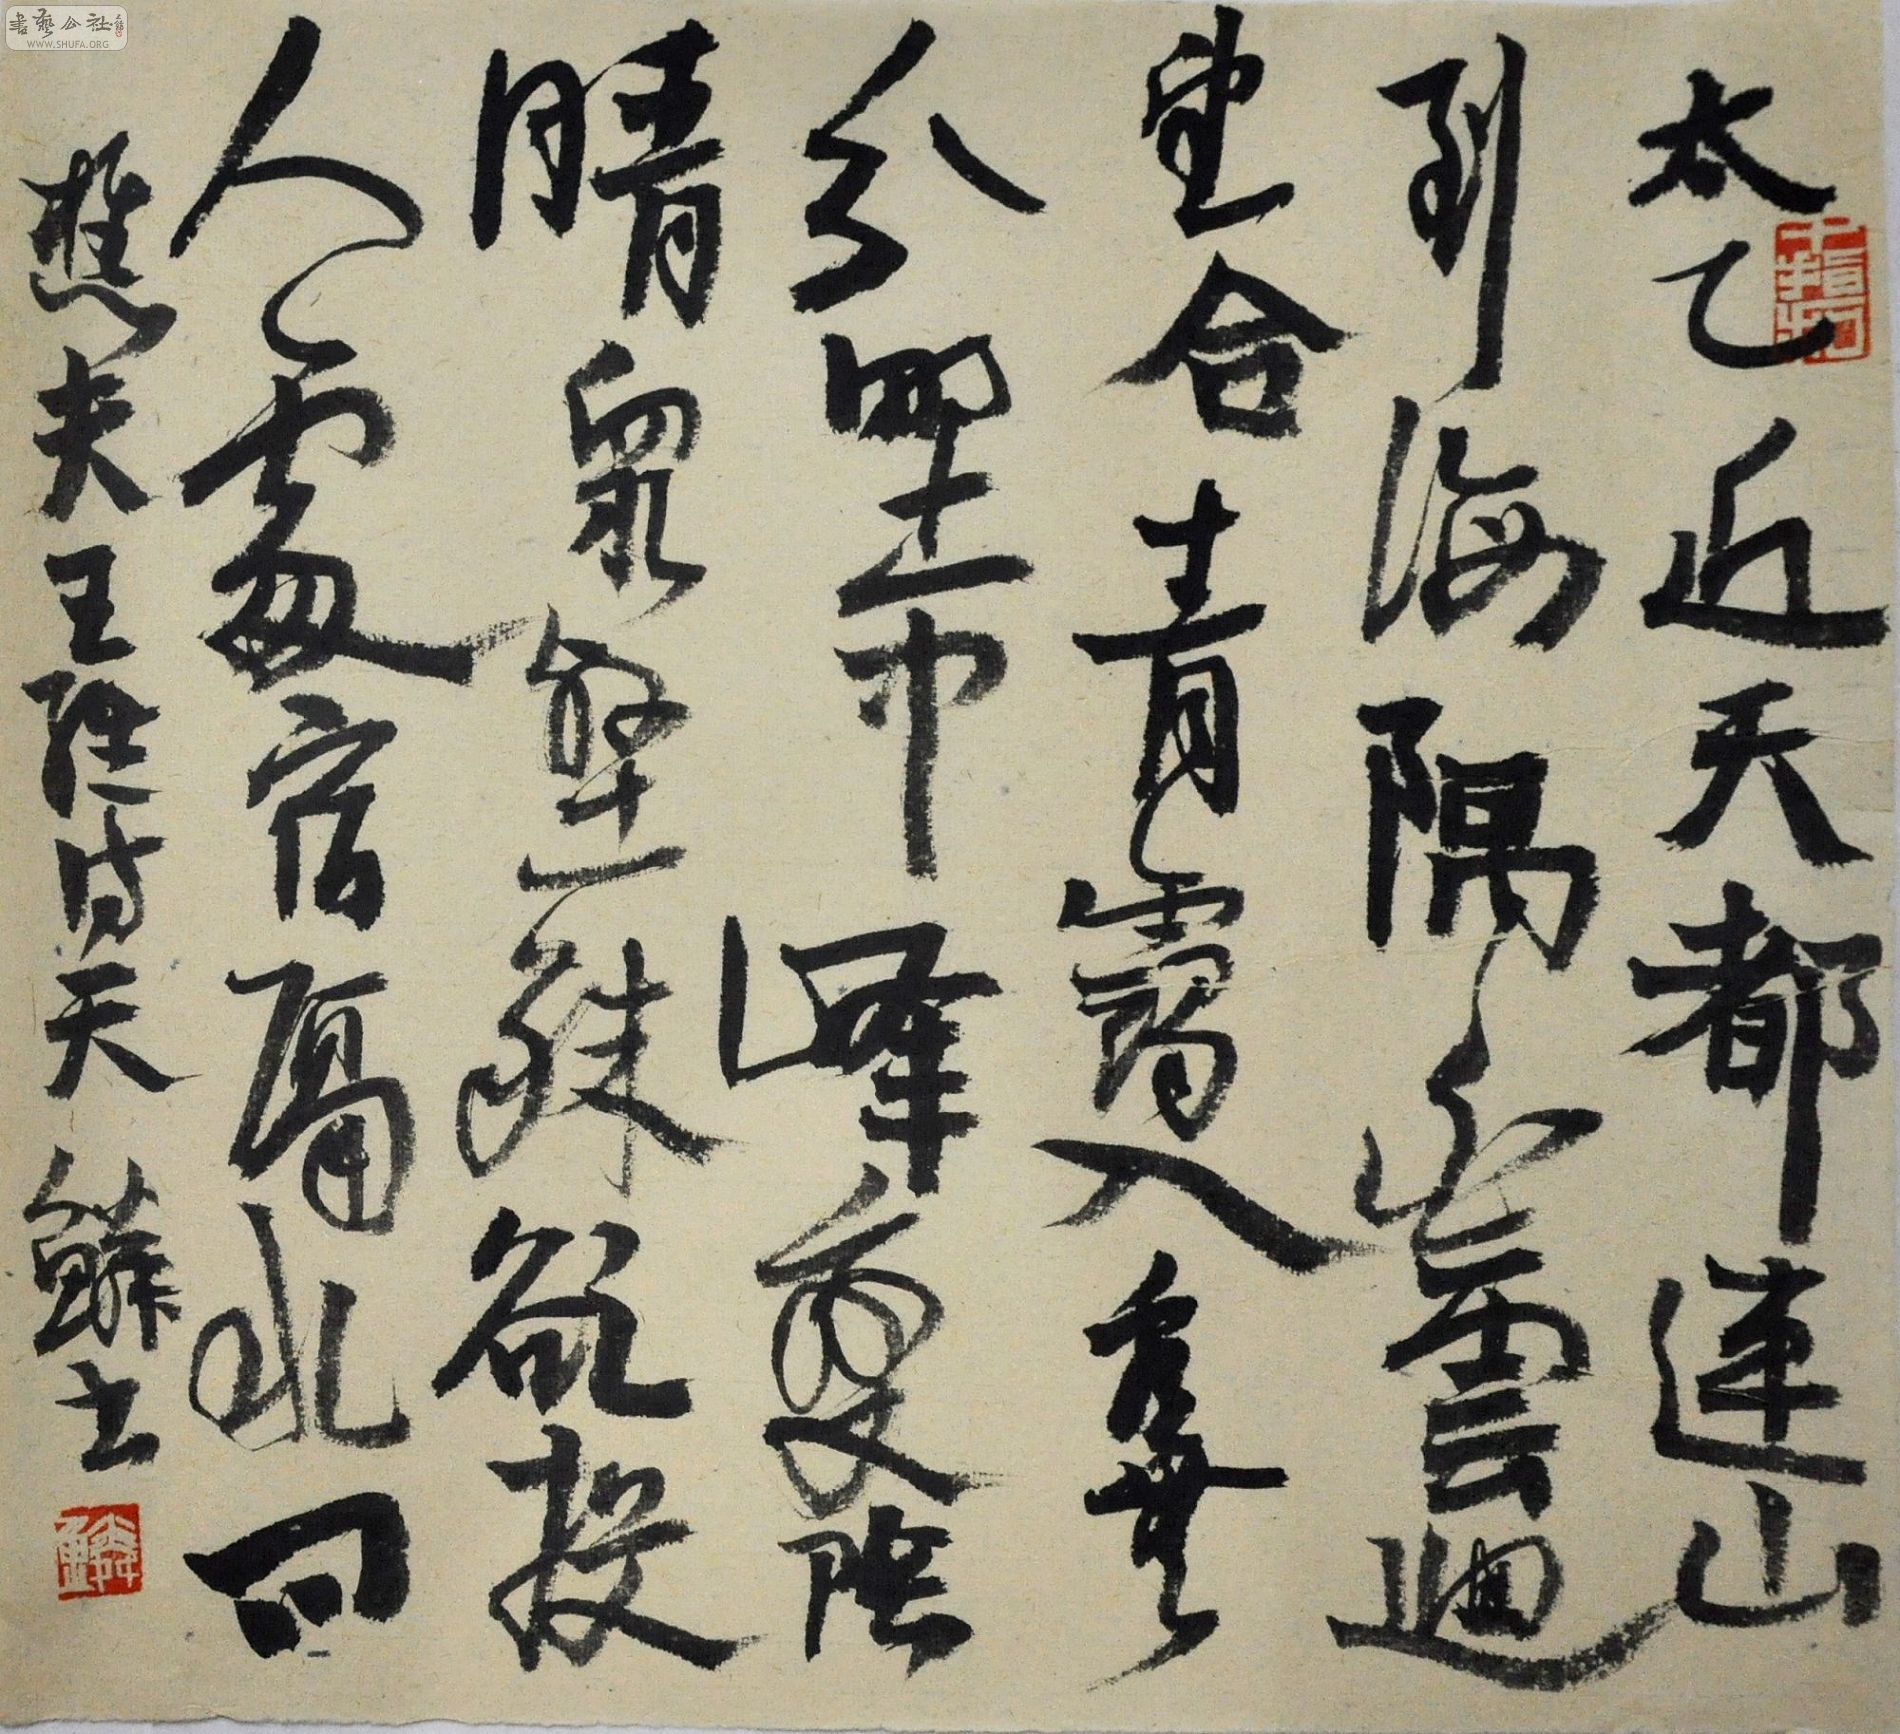 書藝公社
WWW.SHUFA.ORG
太乙近天都連山
到海隅白雲迴
望合青靄入看無
分野中峰變陰
晴眾壑殊欲投
人處宿隔水問
樵夫王維詩天鱗书